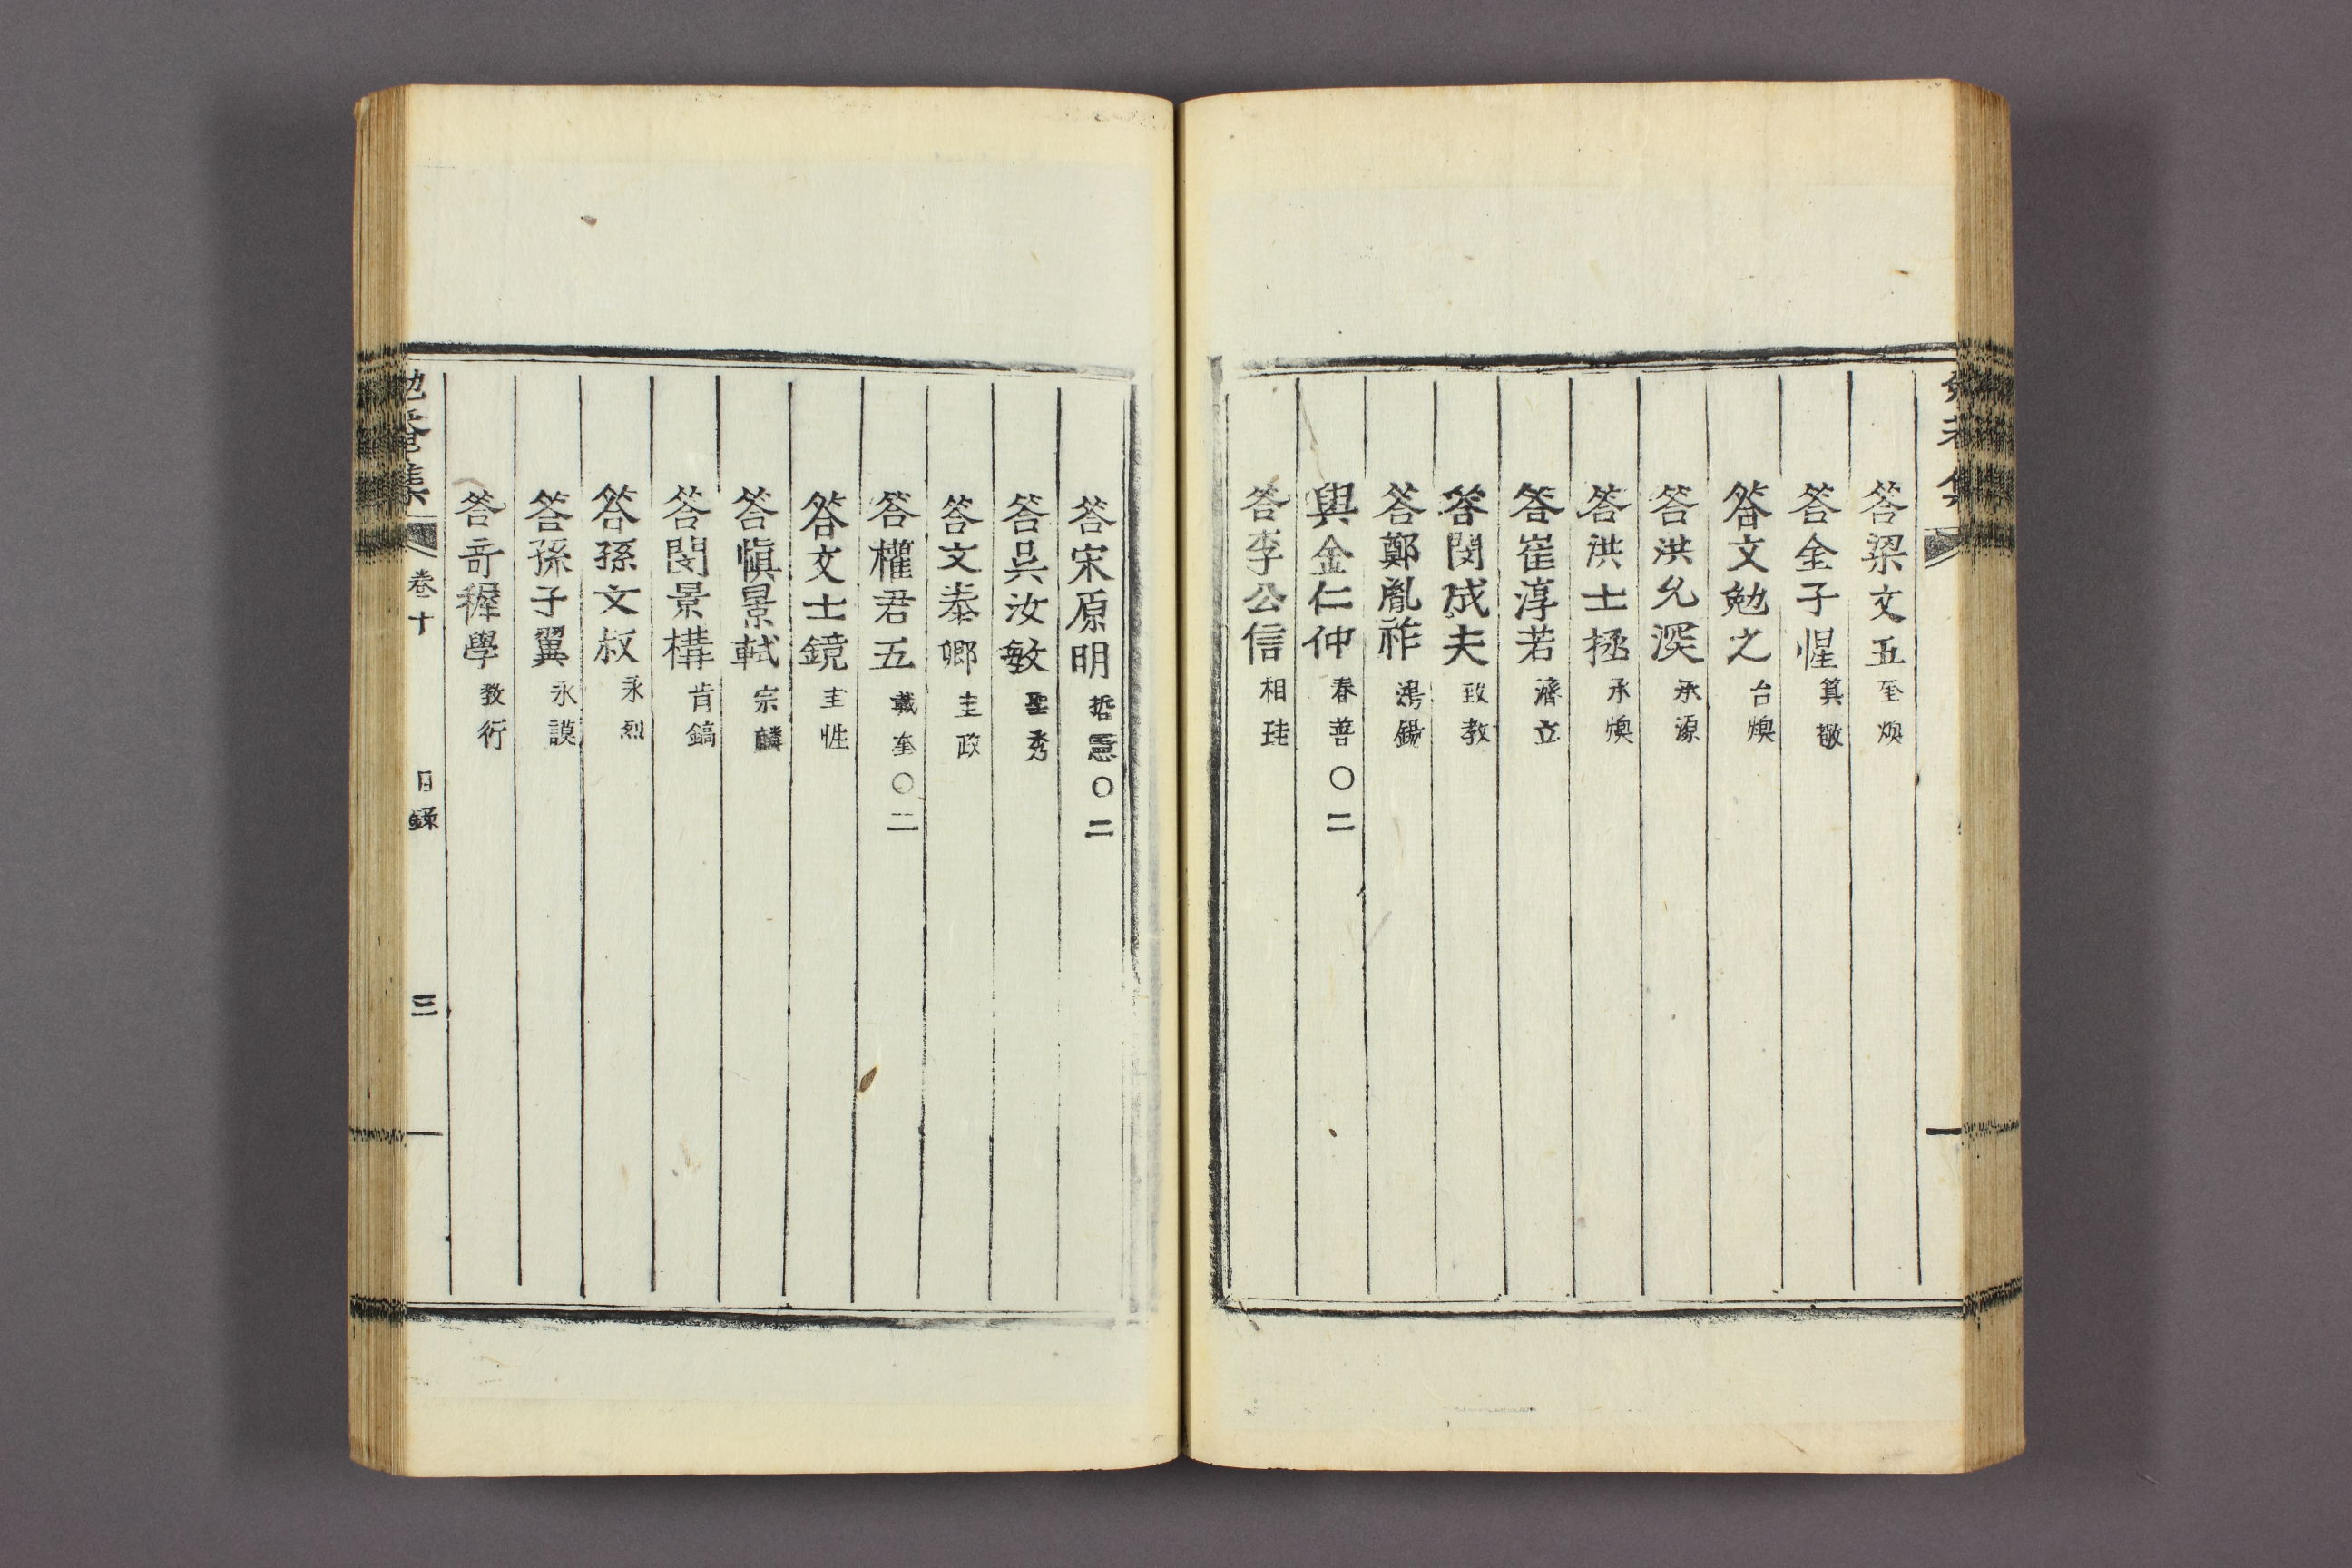 答梁文五 奎煥
答金子惺 箕敬
答文勉之 台煥
答洪允深 承源
答洪士拯 承煥
答崔淳若 濟立
答閔成夫 致敎
答鄭胤祚 鴻錫
與金仁仲 春善○二
答李公信 相珪
答宋原明 哲憲○二
答吳汝敏 聖秀
答文泰卿 圭政
答權君五 載奎○二
答文士鏡 圭性
答愼景軾 宗麟
答閔景構 肯鎬
答孫文叔 永烈
答孫子翼 永謨
答奇穉學 敎衍
勉菴集 卷十 目錄 三